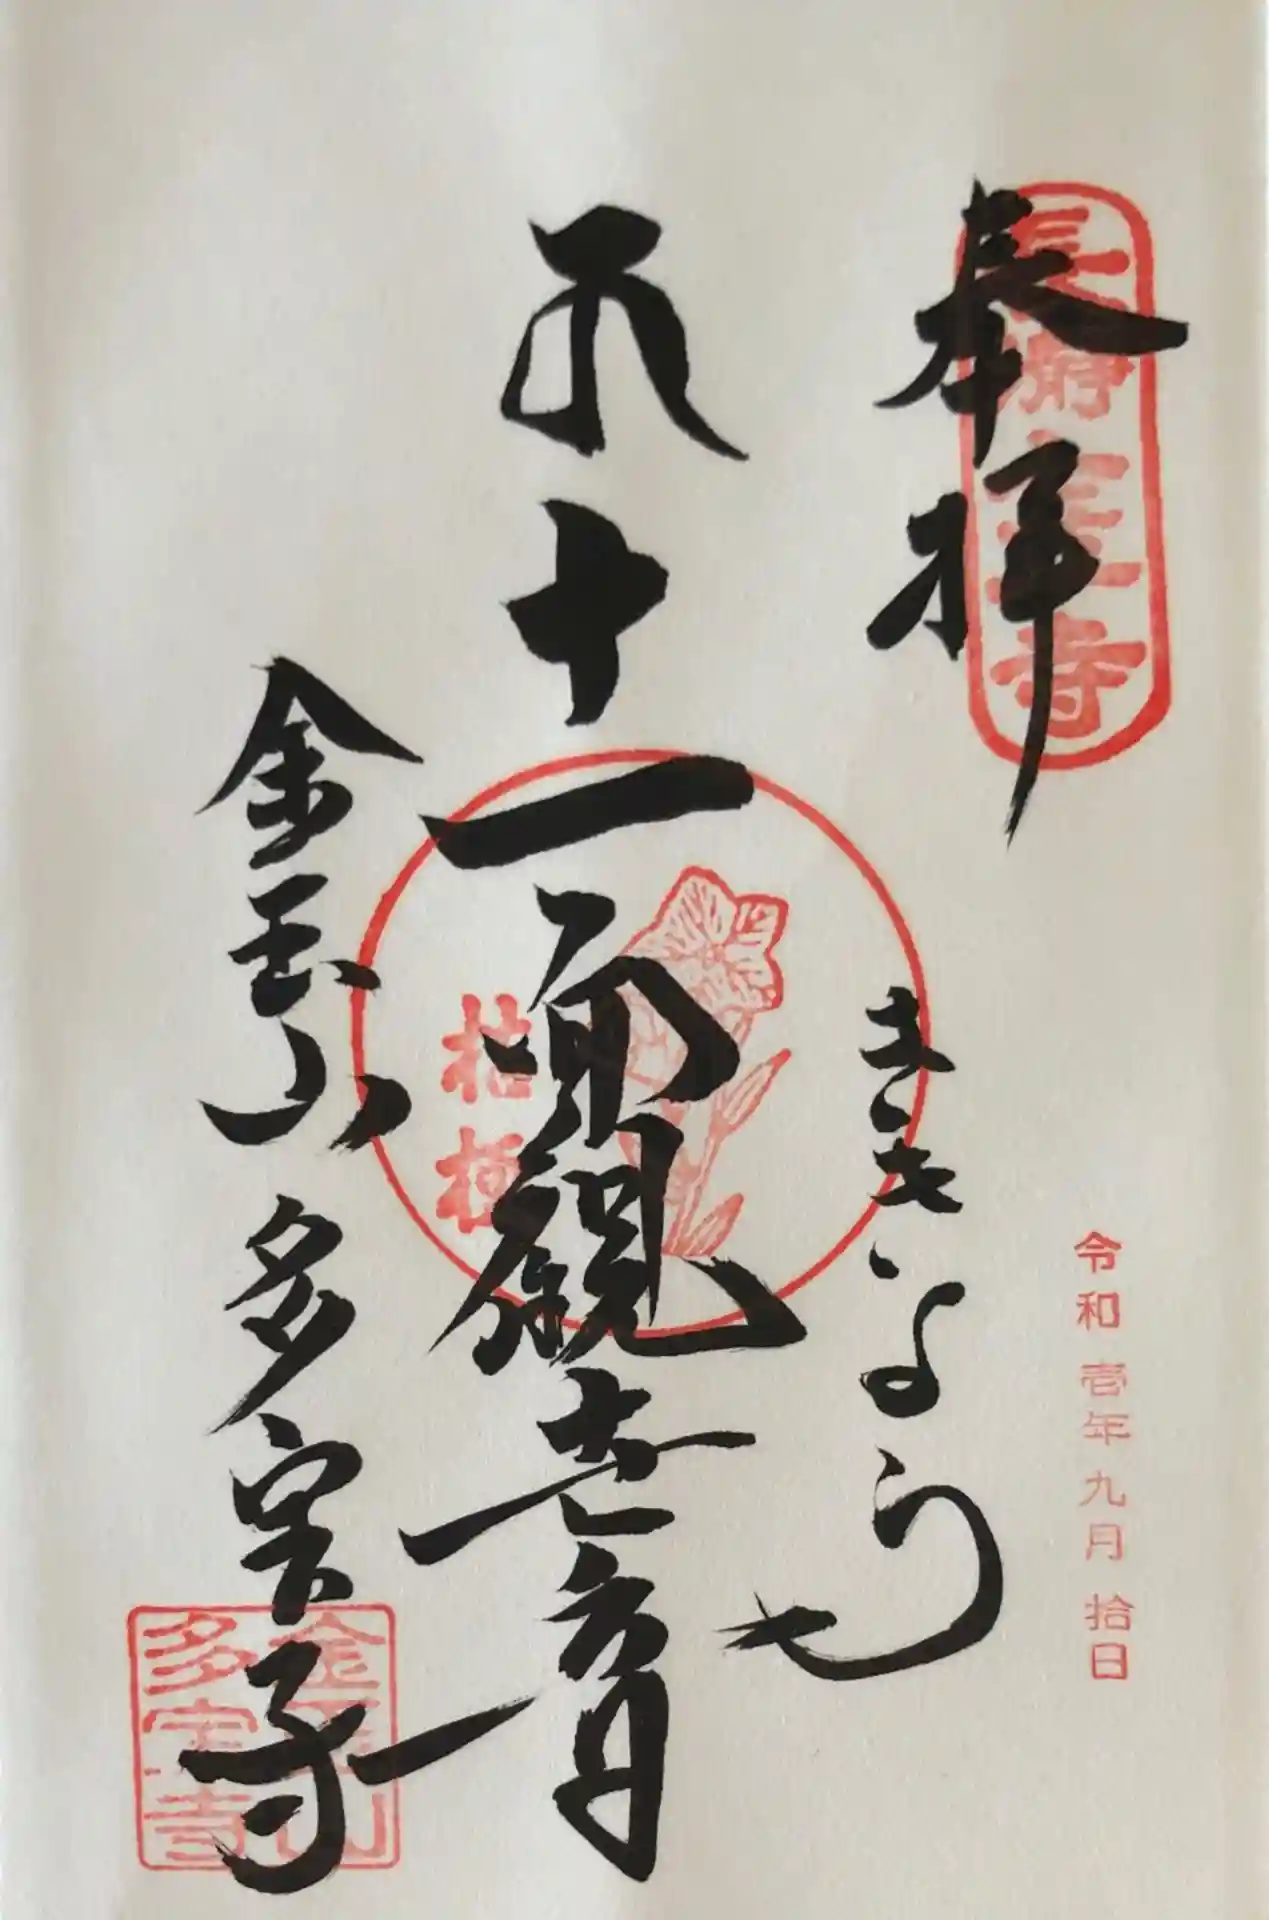 奉拝
長瀞
寺
ききょう
令和壱年九月拾日
十一面観世音
桔梗
金玉山 多宝寺
金玉山
多宝寺